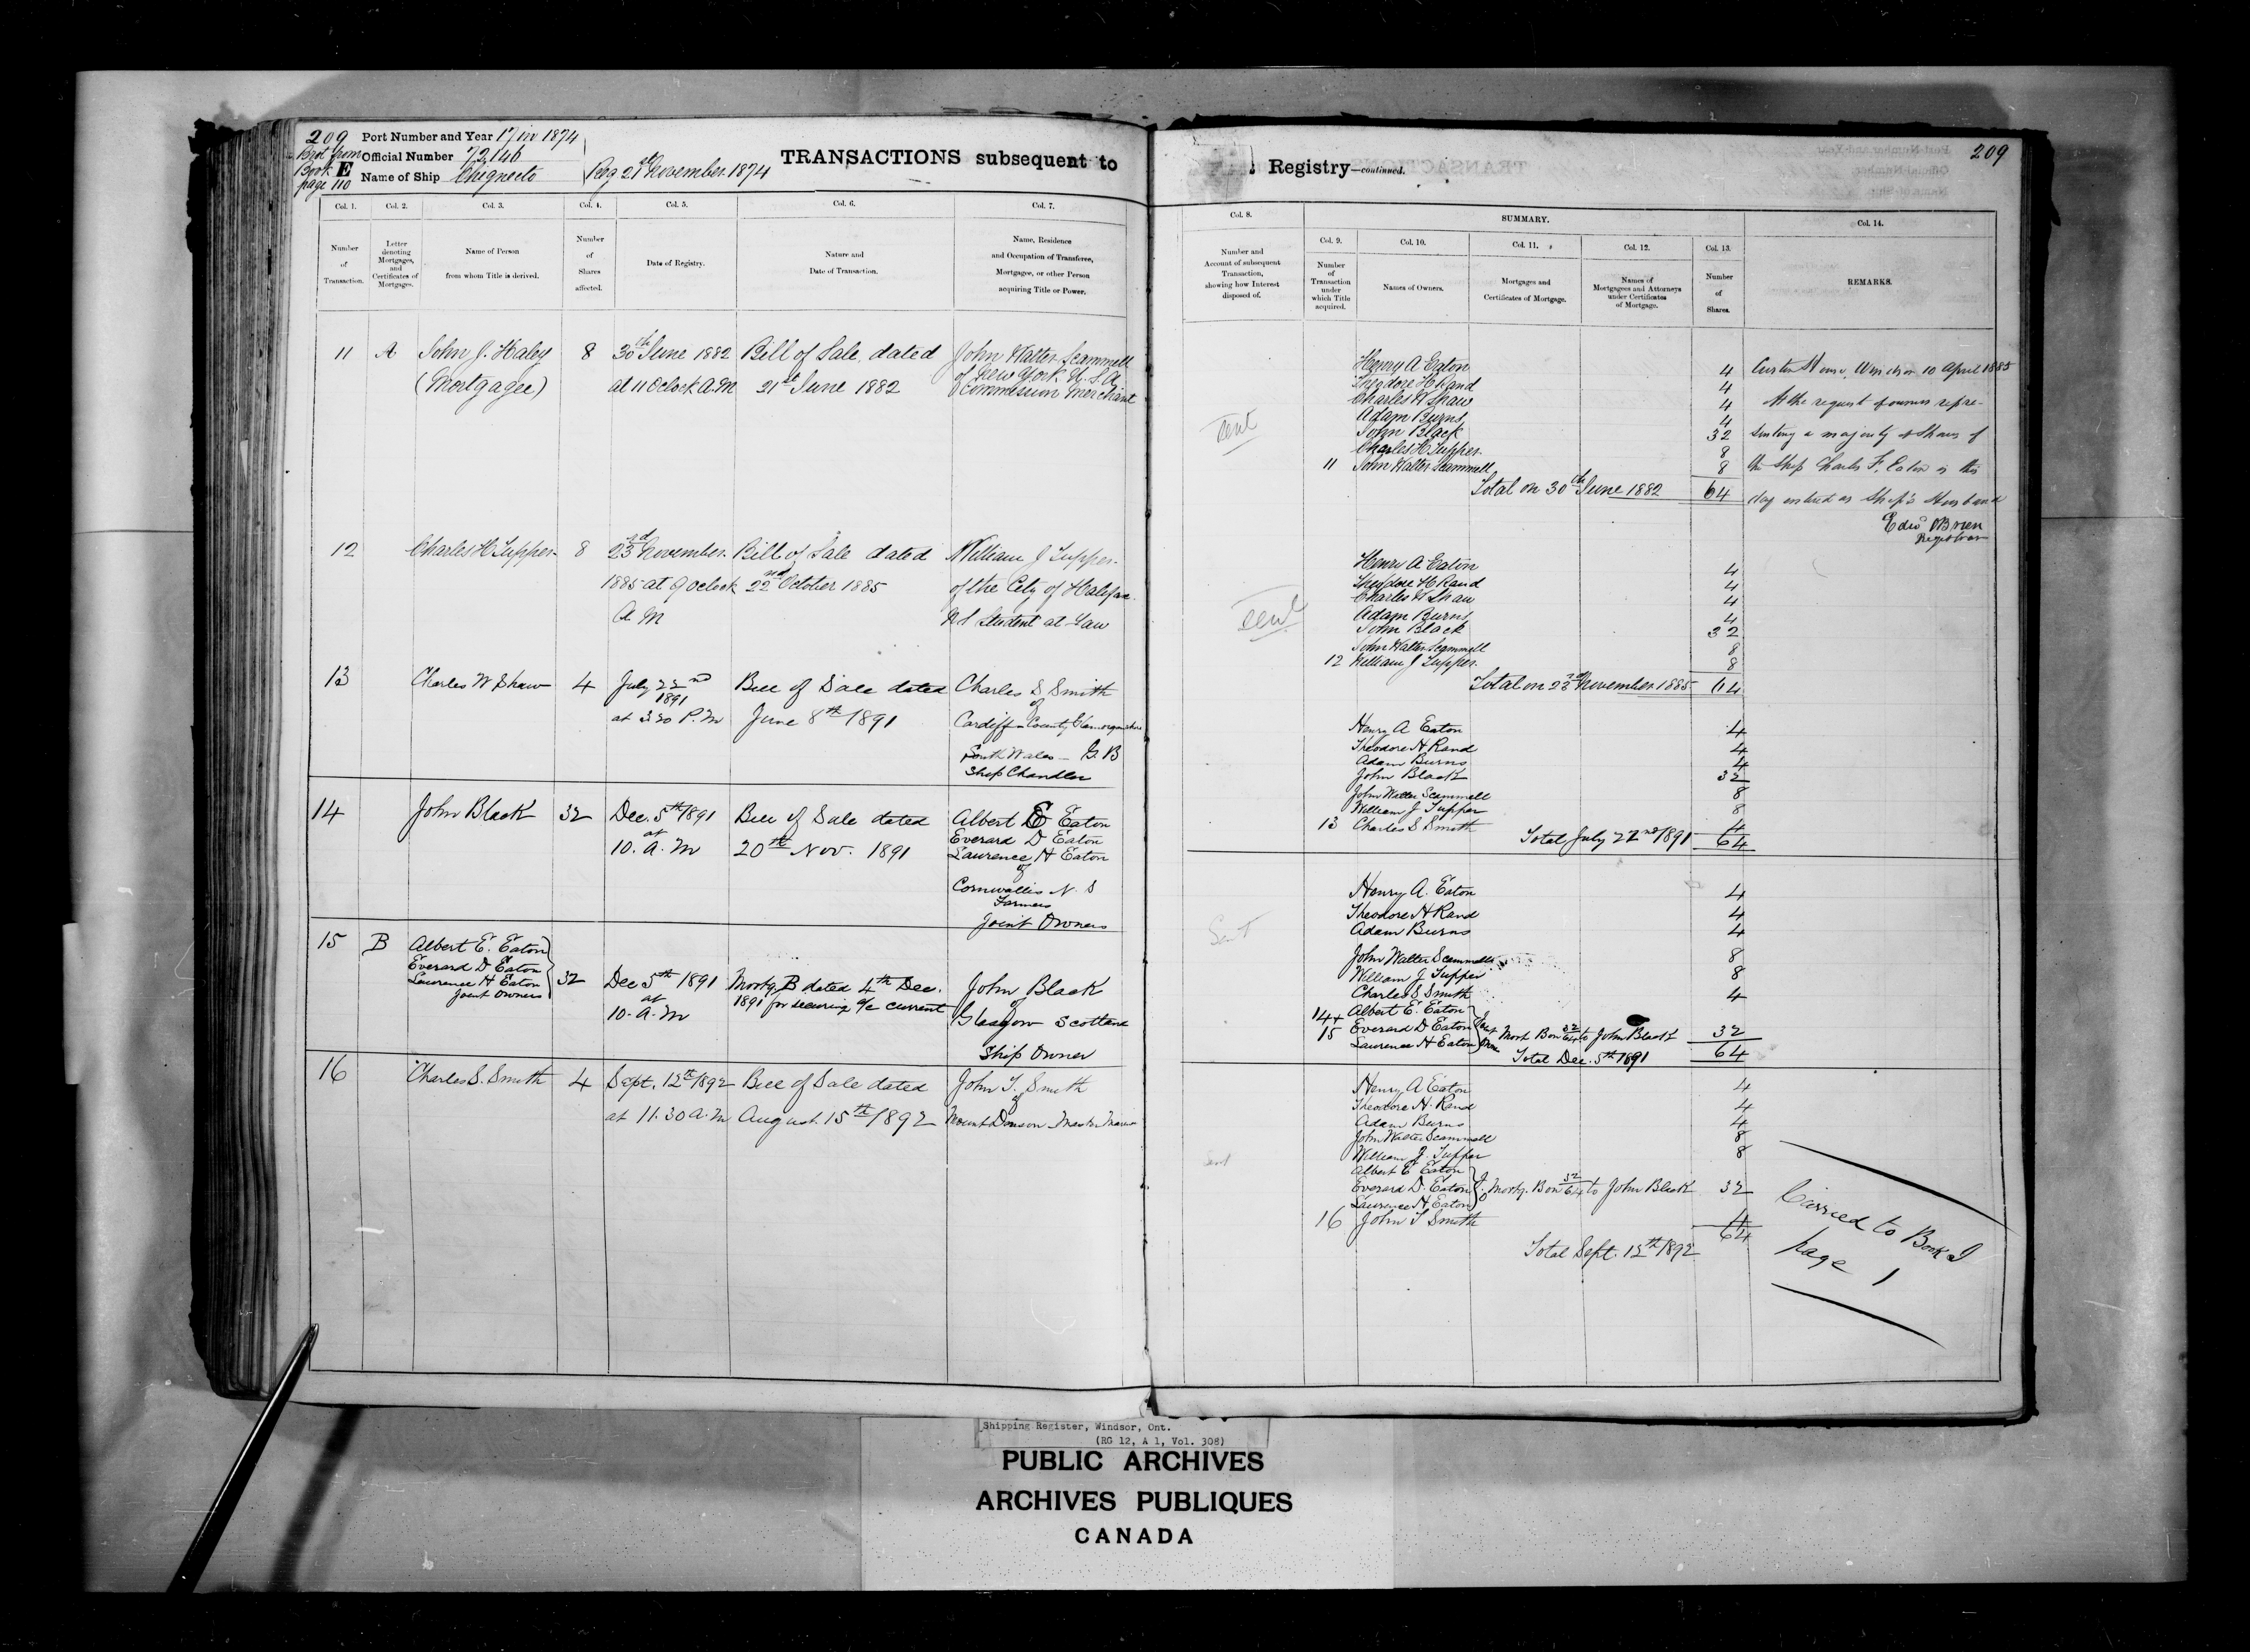 209
Brot from
Book E
page 110
Port Number and Year 17 in 1874
Official Number 72,146
Name of Ship Chignecto
Reg 21st November 1874
TRANSACTIONS subsequent to
Col. 1.
Col. 2.
Col. 3.
Col. 4.
Col. 5.
Col. 6.
Col. 7.
Number of Transaction.
Letter denoting Mortgages, and Certificates of Mortgages.
Name of Person from whom Title is derived.
Number of Shares affected.
Date of Registry.
Nature and Date of Transaction.
Name, Residence and Occupation of Transferee, Mortgagee, or other Person acquiring Title or Power.
11 A John J. Haley 8 30th June 1882 Bill of Sale dated John Walter Scammell
(Mortgagee) at 11 Oclock A.M 21st June 1882 of New York U.S.A
Commission Merchant
12 Charles H Tupper 8 23rd November Bill of Sale dated William J Tupper
1885 at 9 oclock 22nd October 1885 of the City of Halifax
A M NS Student at Law
13 Charles W Shaw 4 July 22nd Bill of Sale dated Charles S Smith
1891 of
at 3.30 P.M June 8th 1891 Cardiff County Glamorganshire
South Wales - G B
Ship Chandler
14 John Black 32 Dec. 5th 1891 Bill of Sale dated Albert E Eaton
at Everard D Eaton
10. A. M 20th Nov. 1891 Laurence H Eaton
of
Cornwallis N. S
Farmers
Joint Owners
15 B Albert E. Eaton
Everard D Eaton
Laurence H Eaton
Joint Owners
32 Dec 5th 1891 Mortg. B dated 4th Dec. John Black
at 1891 for securing a/c current of
10. A. M Glasgow Scotland
Ship Owner
16 Charles S. Smith 4 Sept. 12th 1892 Bill of Sale dated John T. Smith
of
at 11.30 A.M August 15th 1892 Mount Denson Master Mariner
209
Registry—continued.
Col. 8.
SUMMARY.
Col. 14.
Col. 9.
Col. 10.
Col. 11.
Col. 12.
Col. 13.
Number and Account of subsequent Transaction, showing how Interest disposed of.
Number of Transaction under which Title acquired.
Names of Owners.
Mortgages and Certificates of Mortgage.
Names of Mortgagees and Attorneys under Certificates of Mortgage.
Number of Shares.
REMARKS.
Henry A Eaton 4
Theodore H Rand 4
Charles W Shaw 4
Adam Burns 4
sent
John Black 32
Charles H Tupper 8
11 John Walter Scammell 8
Total on 30th June 1882 64
Custom House, Windsor 10 April 1885
At the request of owners repre-
senting a majority of Shares of
the Ship Charles F. Eaton is this
day entered as Ship's Husband
Edwd OBrien
Registrar
Henry A Eaton 4
Theodore H Rand 4
Charles W Shaw 4
sent
Adam Burns 4
John Black 32
John Walter Scammell 8
12 William J Tupper 8
Total on 23rd November 1885 64
Henry A Eaton 4
Theodore H Rand 4
Adam Burns 4
John Black 32
John Walter Scammell 8
William J Tupper 8
13 Charles S Smith 4
Total July 22nd 1891 64
Henry A. Eaton 4
Theodore H Rand 4
Sent
Adam Burns 4
John Walter Scammell 8
William J Tupper 8
Charles S Smith 4
14+ Albert E. Eaton
15 Everard D Eaton Mort B on 32/64 to John Black 32
Laurence H Eaton
Total Dec. 5th 1891 64
Henry A Eaton 4
Theodore H. Rand 4
Adam Burns 4
John Walter Scammell 8
sent
William J. Tupper 8
Albert E Eaton
Everard D. Eaton J O Mortg. B on 32/64 to John Black 32
Laurence H Eaton
16 John T Smith 4
64
Total Sept. 12th 1892
Carried to Book I
page 1
Shipping Register, Windsor, Ont.
(RG 12, A 1, Vol. 308)
PUBLIC ARCHIVES
ARCHIVES PUBLIQUES
CANADA